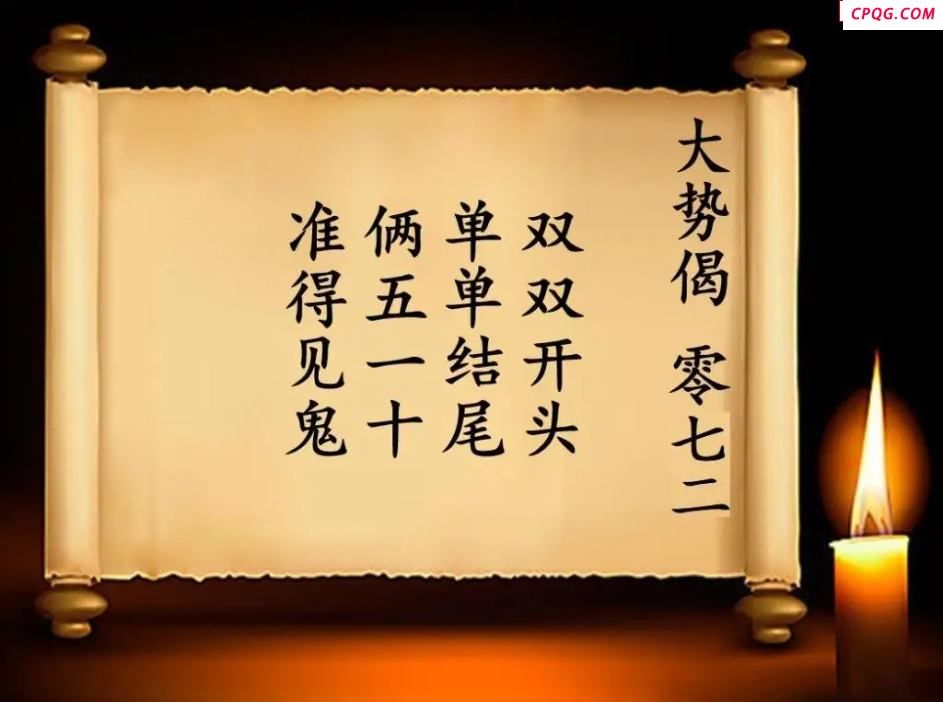 CPQG.COM
大势偈 零七二
双双开头
单单结尾
俩五一十
准得见鬼